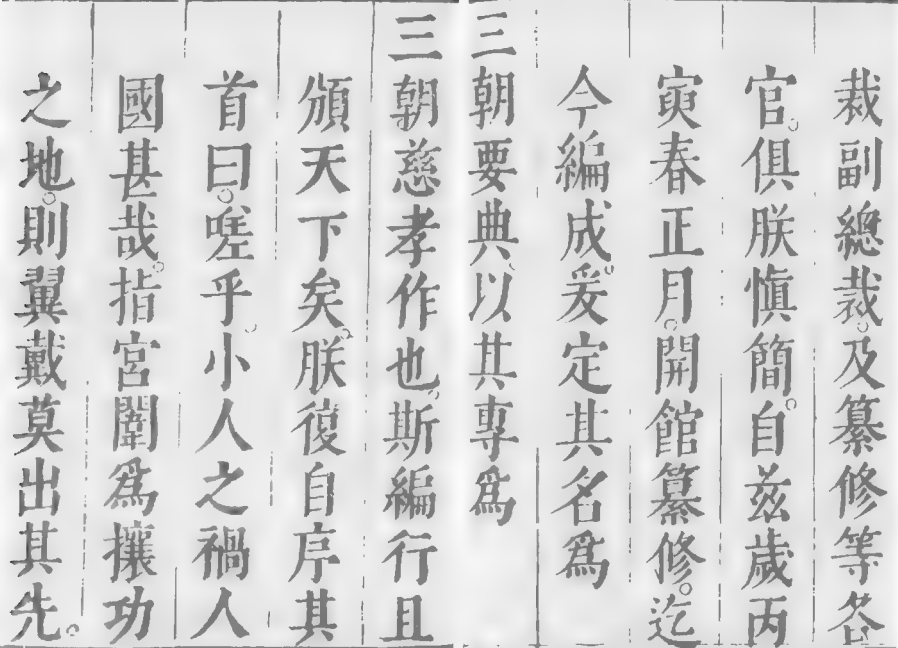 裁副總裁。及纂修等各
官。俱朕愼簡。自兹歲丙
寅春正月。開館纂修。迄
今編成。爰定其名爲
三朝要典、以其專爲
三朝慈孝作也。斯編行且
頒天下矣。朕復自序其
首曰。嗟乎。小人之禍人
國甚哉。指宮闈爲攘功
之地。則翼戴莫出其先。